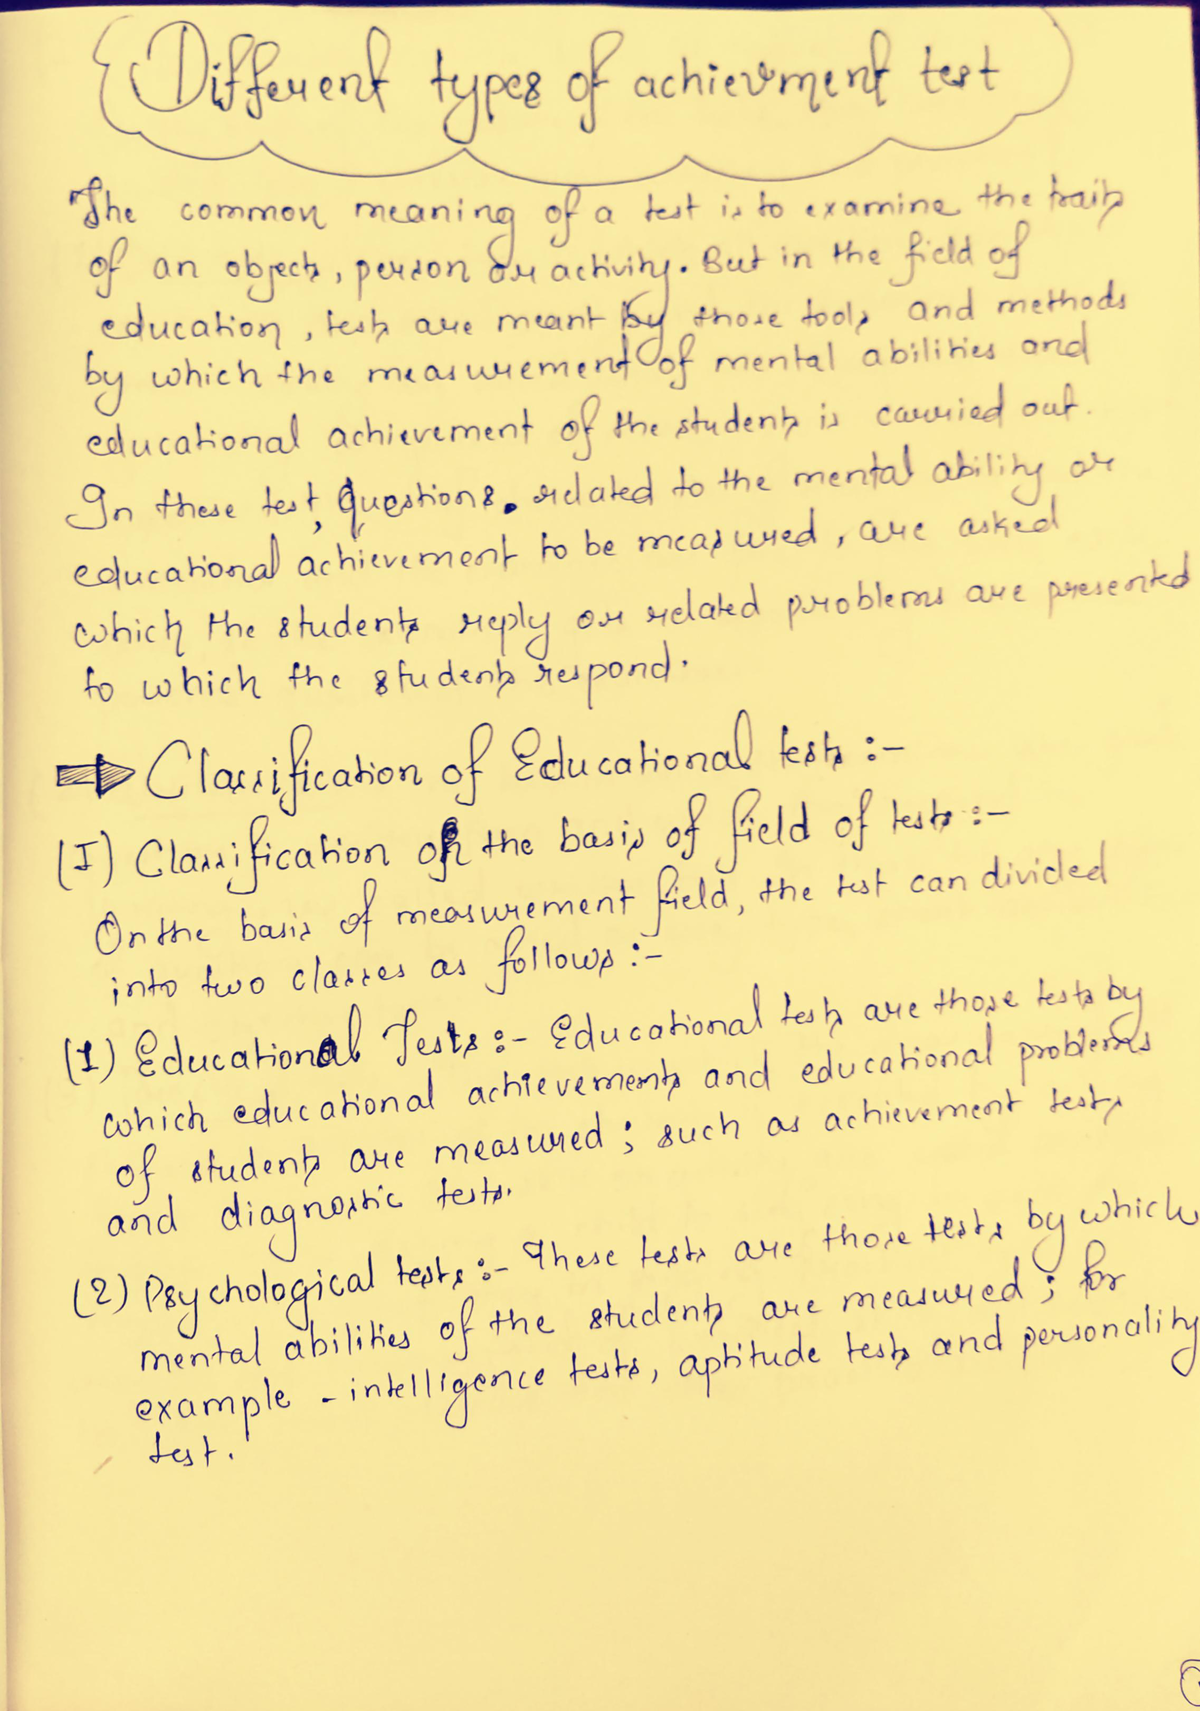 Different types of achievment test
The common meaning of a test is to examine the traits
of an objects, person or activity. But in the field of
education, tests are meant by those tools and methods
by which the measurement of mental abilities and
educational achievement of the students is carried out.
In these test, questions. related to the mental ability or
educational achievement to be measured, are asked
which the students reply or related problems are presented
to which the students respond.
Classification of Educational tests :-
(I) Classification on the basis of field of tests :-
On the basis of measurement field, the test can divided
into two classes as follows :-
(1) Educational Tests :- Educational tests are those tests by
which educational achievements and educational problems
of students are measured ; such as achievement tests
and diagnostic tests.
(2) Psychological tests :- These tests are those tests by which
mental abilities of the students are measured ; for
example - intelligence tests, aptitude tests and personality
test.